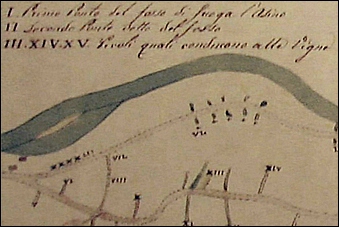 I. Primo Ponte del fosso di fuoga l'Asino
II Secondo Ponte detto del fosso
III.XIV.XV. Vicoli quali conducono alle Vigne
VI.
III
VII.
VIII
XIII
XIV